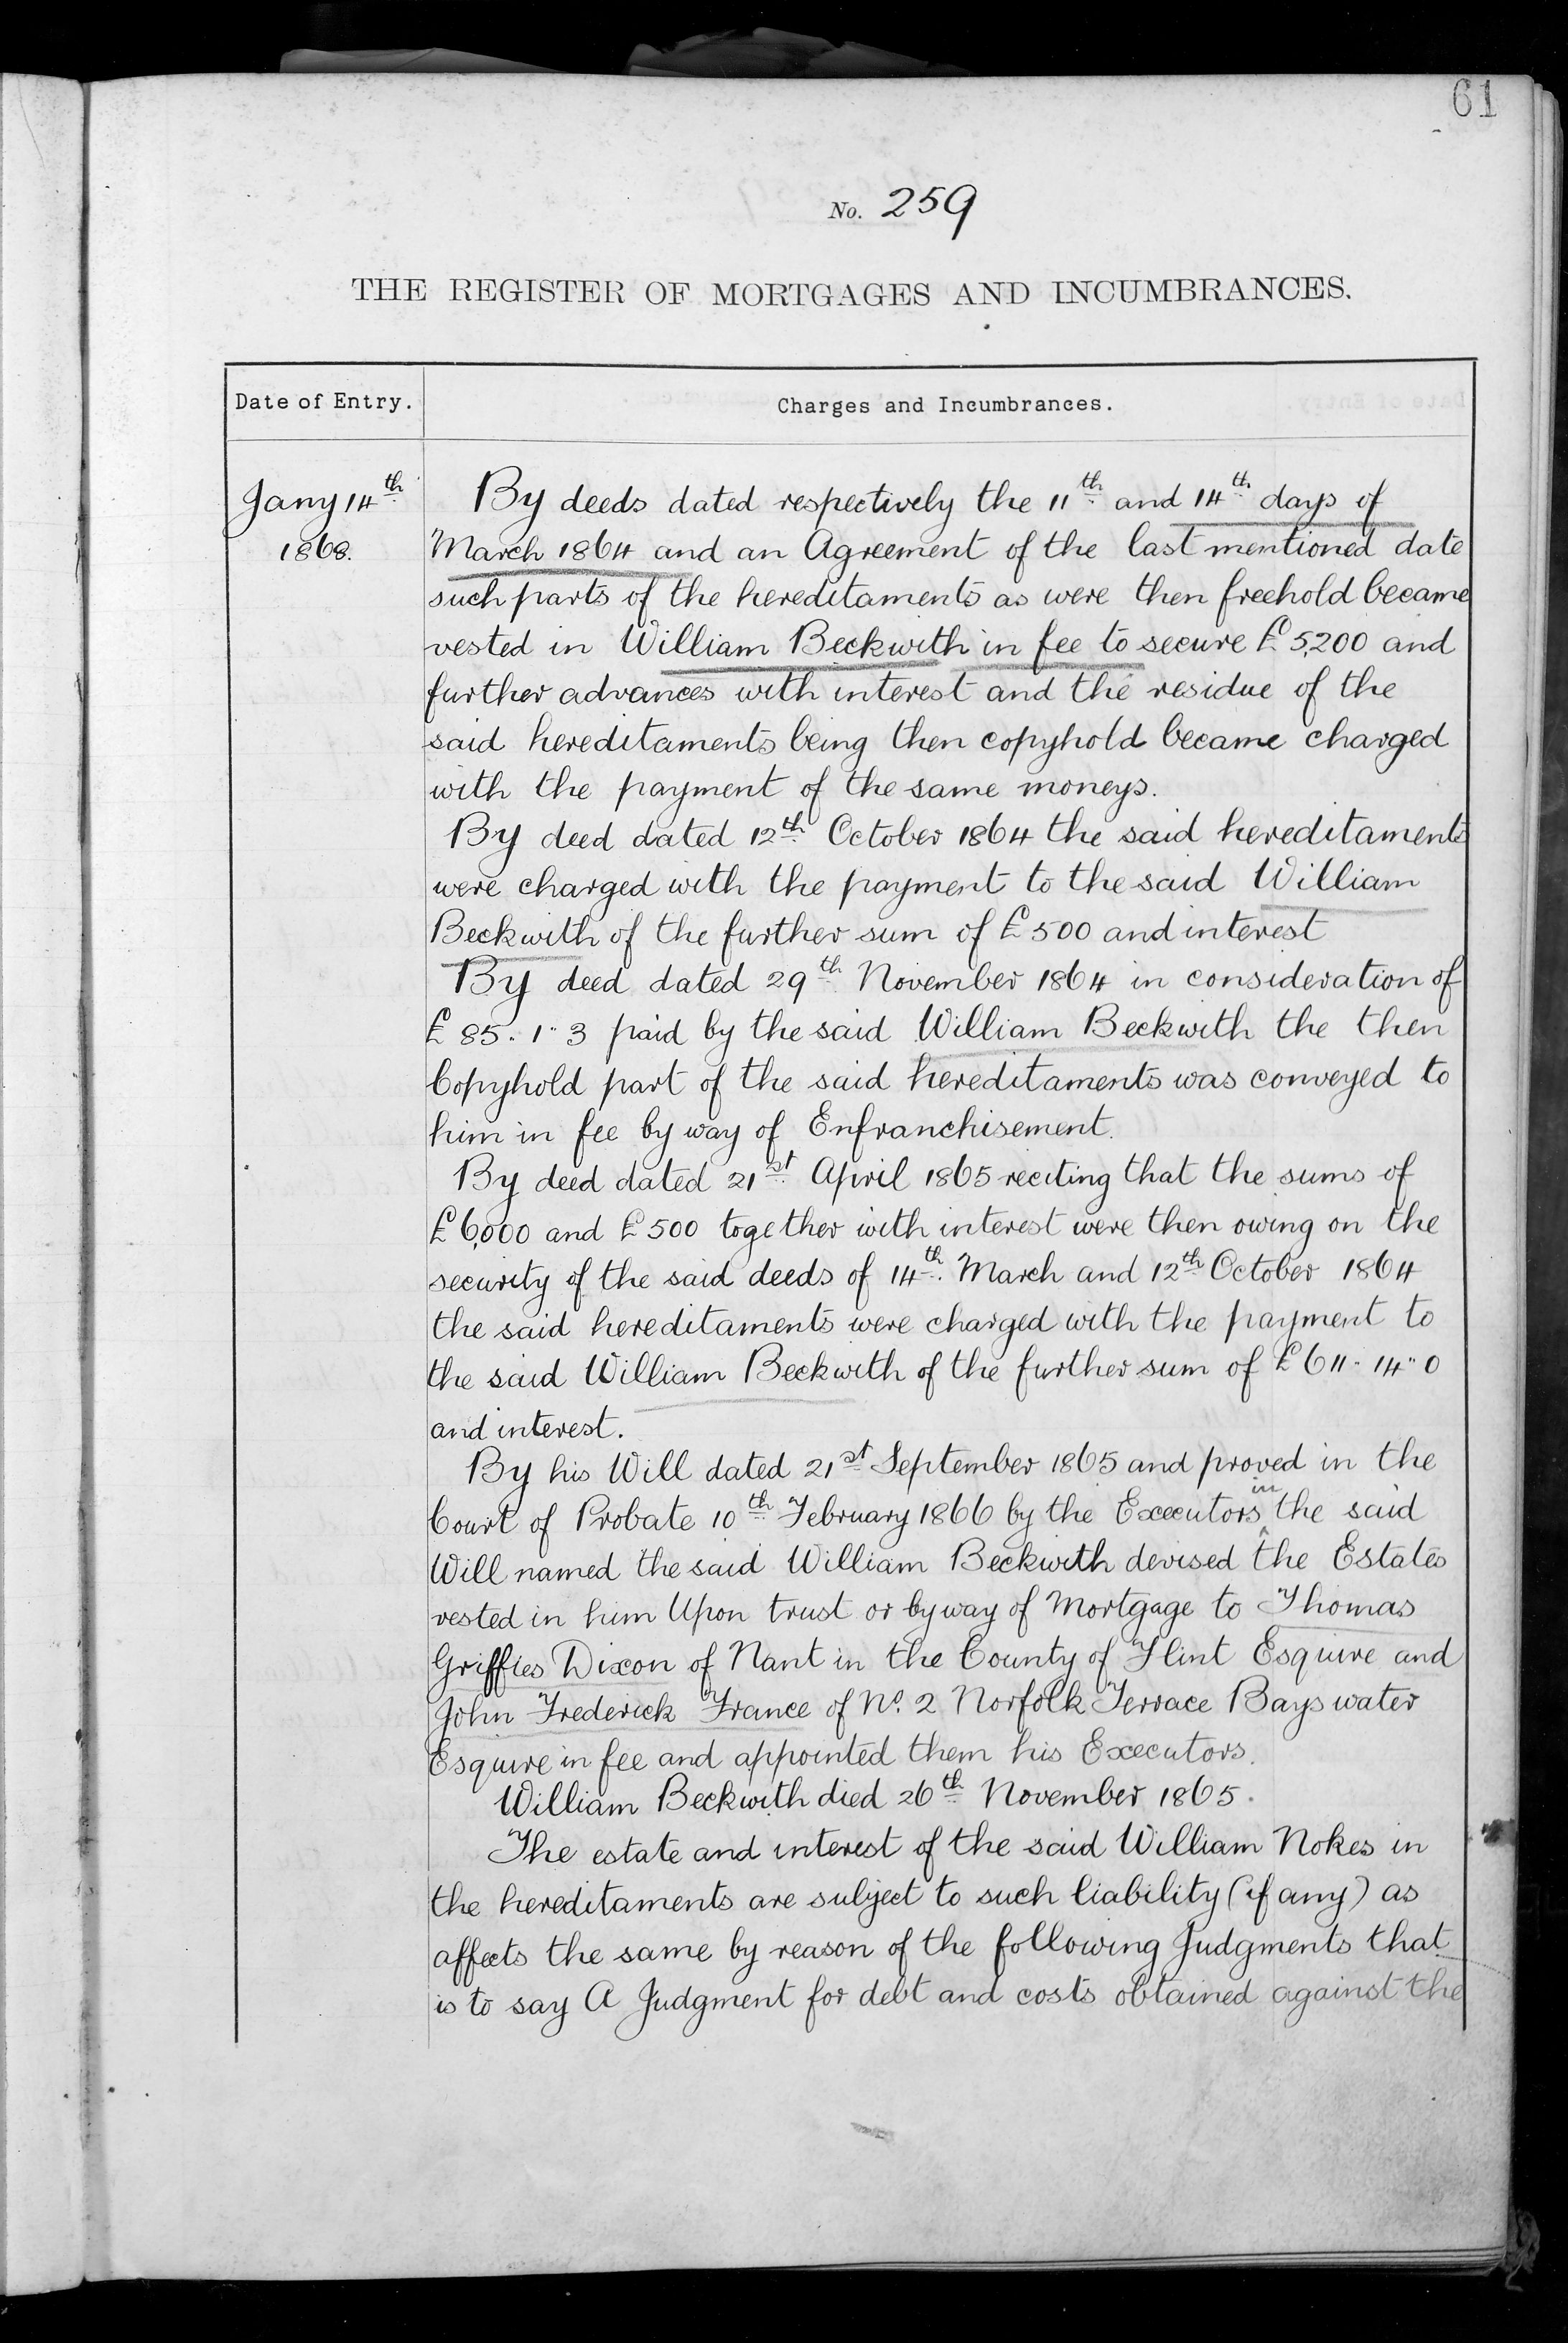 61
No. 259
THE REGISTER OF MORTGAGES AND INCUMBRANCES.
Date of Entry.
Charges and Incumbrances.
Jany 14th
1868.
By deeds dated respectively the 11th and 14th days of
March 1864 and an Agreement of the last mentioned date
such parts of the hereditaments as were then freehold became
vested in William Beckwith in fee to secure £5,200 and
further advances with interest and the residue of the
said hereditaments being then copyhold became charged
with the payment of the same moneys.
By deed dated 12th October 1864 the said hereditaments
were charged with the payment to the said William
Beckwith of the further sum of £500 and interest
By deed dated 29th November 1864 in consideration of
£85. 1" 3 paid by the said William Beckwith the then
Copyhold part of the said hereditaments was conveyed to
him in fee by way of Enfranchisement.
By deed dated 21st April 1865 reciting that the sums of
£6,000 and £500 together with interest were then owing on the
security of the said deeds of 14th March and 12th October 1864
the said hereditaments were charged with the payment to
the said William Beckwith of the further sum of £611. 14" 0
and interest.
By his Will dated 21st September 1865 and proved in the
Court of Probate 10th February 1866 by the Executors in the said
Will named the said William Beckwith devised the Estates
vested in him Upon trust or by way of Mortgage to Thomas
Griffies Dixon of Nant in the County of Flint Esquire and
John Frederick France of No. 2 Norfolk Terrace Bayswater
Esquire in fee and appointed them his Executors.
William Beckwith died 26th November 1865.
The estate and interest of the said William Nokes in
the hereditaments are subject to such liability (if any) as
affects the same by reason of the following Judgments that
is to say A Judgment for debt and costs obtained against the